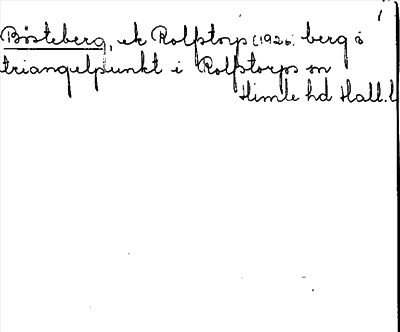 1
Bösteberg, ek Rolfstorp (1926. berg o
triangelpunkt i Rolfstorps sn
Himle hd Hall. l